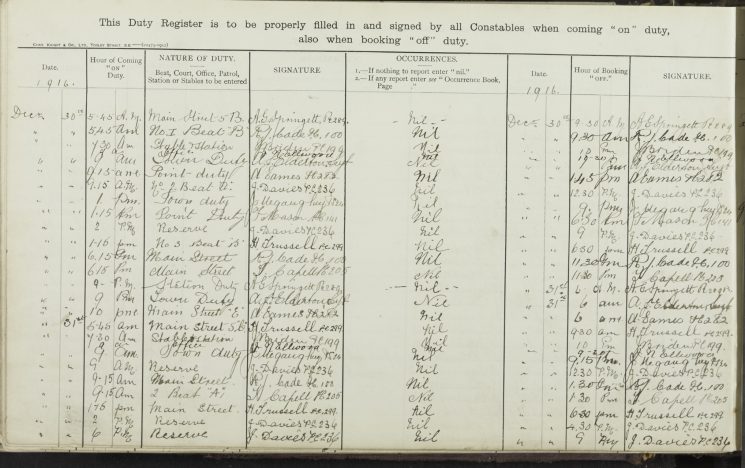 This Duty Register is to be properly filled in and signed by all Constables when coming "on" duty,
also when booking "off" duty.
Date. Hour of Coming "on" Duty. NATURE OF DUTY. Beat, Court, Office, Patrol, Station or Stables to be entered SIGNATURE. OCCURRENCES. 1.—If nothing to report enter "nil." 2.—If any report enter see "Occurrence Book, Page" Date. Hour of Booking "off." SIGNATURE.
1916. 1916.
Dec 30th 5.45 A.M. Main Street 5 B. A.E. Springett Pc 289. - Nil - Dec 30th 9.30 A.M. A.E. Springett
" " 5.45 am No. 1 Beat B R.J. Cade Pc. 100 Nil " " 9.30 am R.J. Cade Pc. 100
" " 7.30 am Station Pc 199 Nil " " 10 Pm Pc 199
" " 9 am Town Duty Nil " "
" " 9.15 am Point duty A Eames Pc 282 Nil " " 1.45 pm A Eames Pc 282
" " 9.15 A.M. No. 2 Beat A. J. Davies P.C. 236 Nil " " 12.30 P.M. J. Davies P.C. 236
" " 1 pm. Town duty Nil " " 9 pm
" " 1.15 Pm Point Duty T. Mason Pc 141 Nil " " 6.30 Pm T. Mason Pc 141
" " 2 P.M. Reserve J. Davies P.C. 236 Nil " " 9 P.M. J. Davies P.C. 236
" " 1.15 pm No 3 Beat B H. Trussell P.C. 299. Nil " " 6.30 pm H. Trussell P.C. 299
" " 6.15 Pm Main Street R.J. Cade Pc. 100 Nil " " 11.30 Pm R.J. Cade Pc. 100
" " 6.15 Pm Main Street J. Capell Pc 205 Nil " " 11.30 Pm J. Capell Pc 205
" " 9 P.M. Station Duty A.E. Springett Pc 289. - Nil - " 31st 6 A.M. A.E. Springett Pc 289
" " 9 Pm Town Duty Nil " 31st 6 am
" " 10 pm Main Street "E" A Eames Pc 282 Nil " " 6 am A Eames Pc 282
" 31st 5.45 am Main Street 5.B. H. Trussell P.C. 299. Nil " " 9.30 am H. Trussell P.C. 299.
" " 7.30 am Station Pc 199 Nil " " 10 Pm Pc 199
" " Office Nil " "
" " 9 am Town duty Nil " " 9.15 Pm
" " 9 A.M. Reserve J. Davies P.C. 236 Nil " " 12.30 P.M. J. Davies P.C. 236
" " 9.15 am Main Street. R.J. Cade Pc. 100 Nil " " 1.30 Pm R.J. Cade Pc. 100
" " 9.15 am 2 Beat 'A' J. Capell Pc 205 Nil " " 1.30 Pm J. Capell Pc 205
" " 1.15 pm Main Street. H. Trussell P.C. 299 Nil " " 6.30 pm H. Trussell P.C. 299
" " 2 P.M. Reserve J. Davies P.C. 236 Nil " " 4.30 P.M. J. Davies P.C. 236
" " 6 P.M. Reserve J. Davies P.C. 236 Nil " " 9 J. Davies P.C. 236